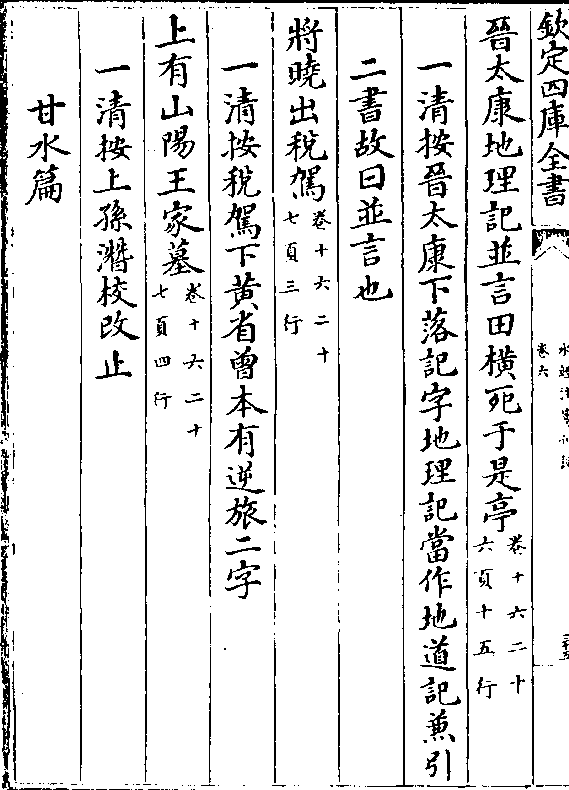 欽定四庫全書
卷六
晉太康地理記並言田橫死于是亭卷十六二十六頁十五行
一清按晉太康下落記字地理記當作地道記兼引
二書故曰並言也
將曉出稅駕卷十六二十七頁三行
一清按稅駕下黃省曾本有逆旅二字
上有山陽王家墓卷十六二十七頁四行
一清按上孫潛校改止
甘水篇